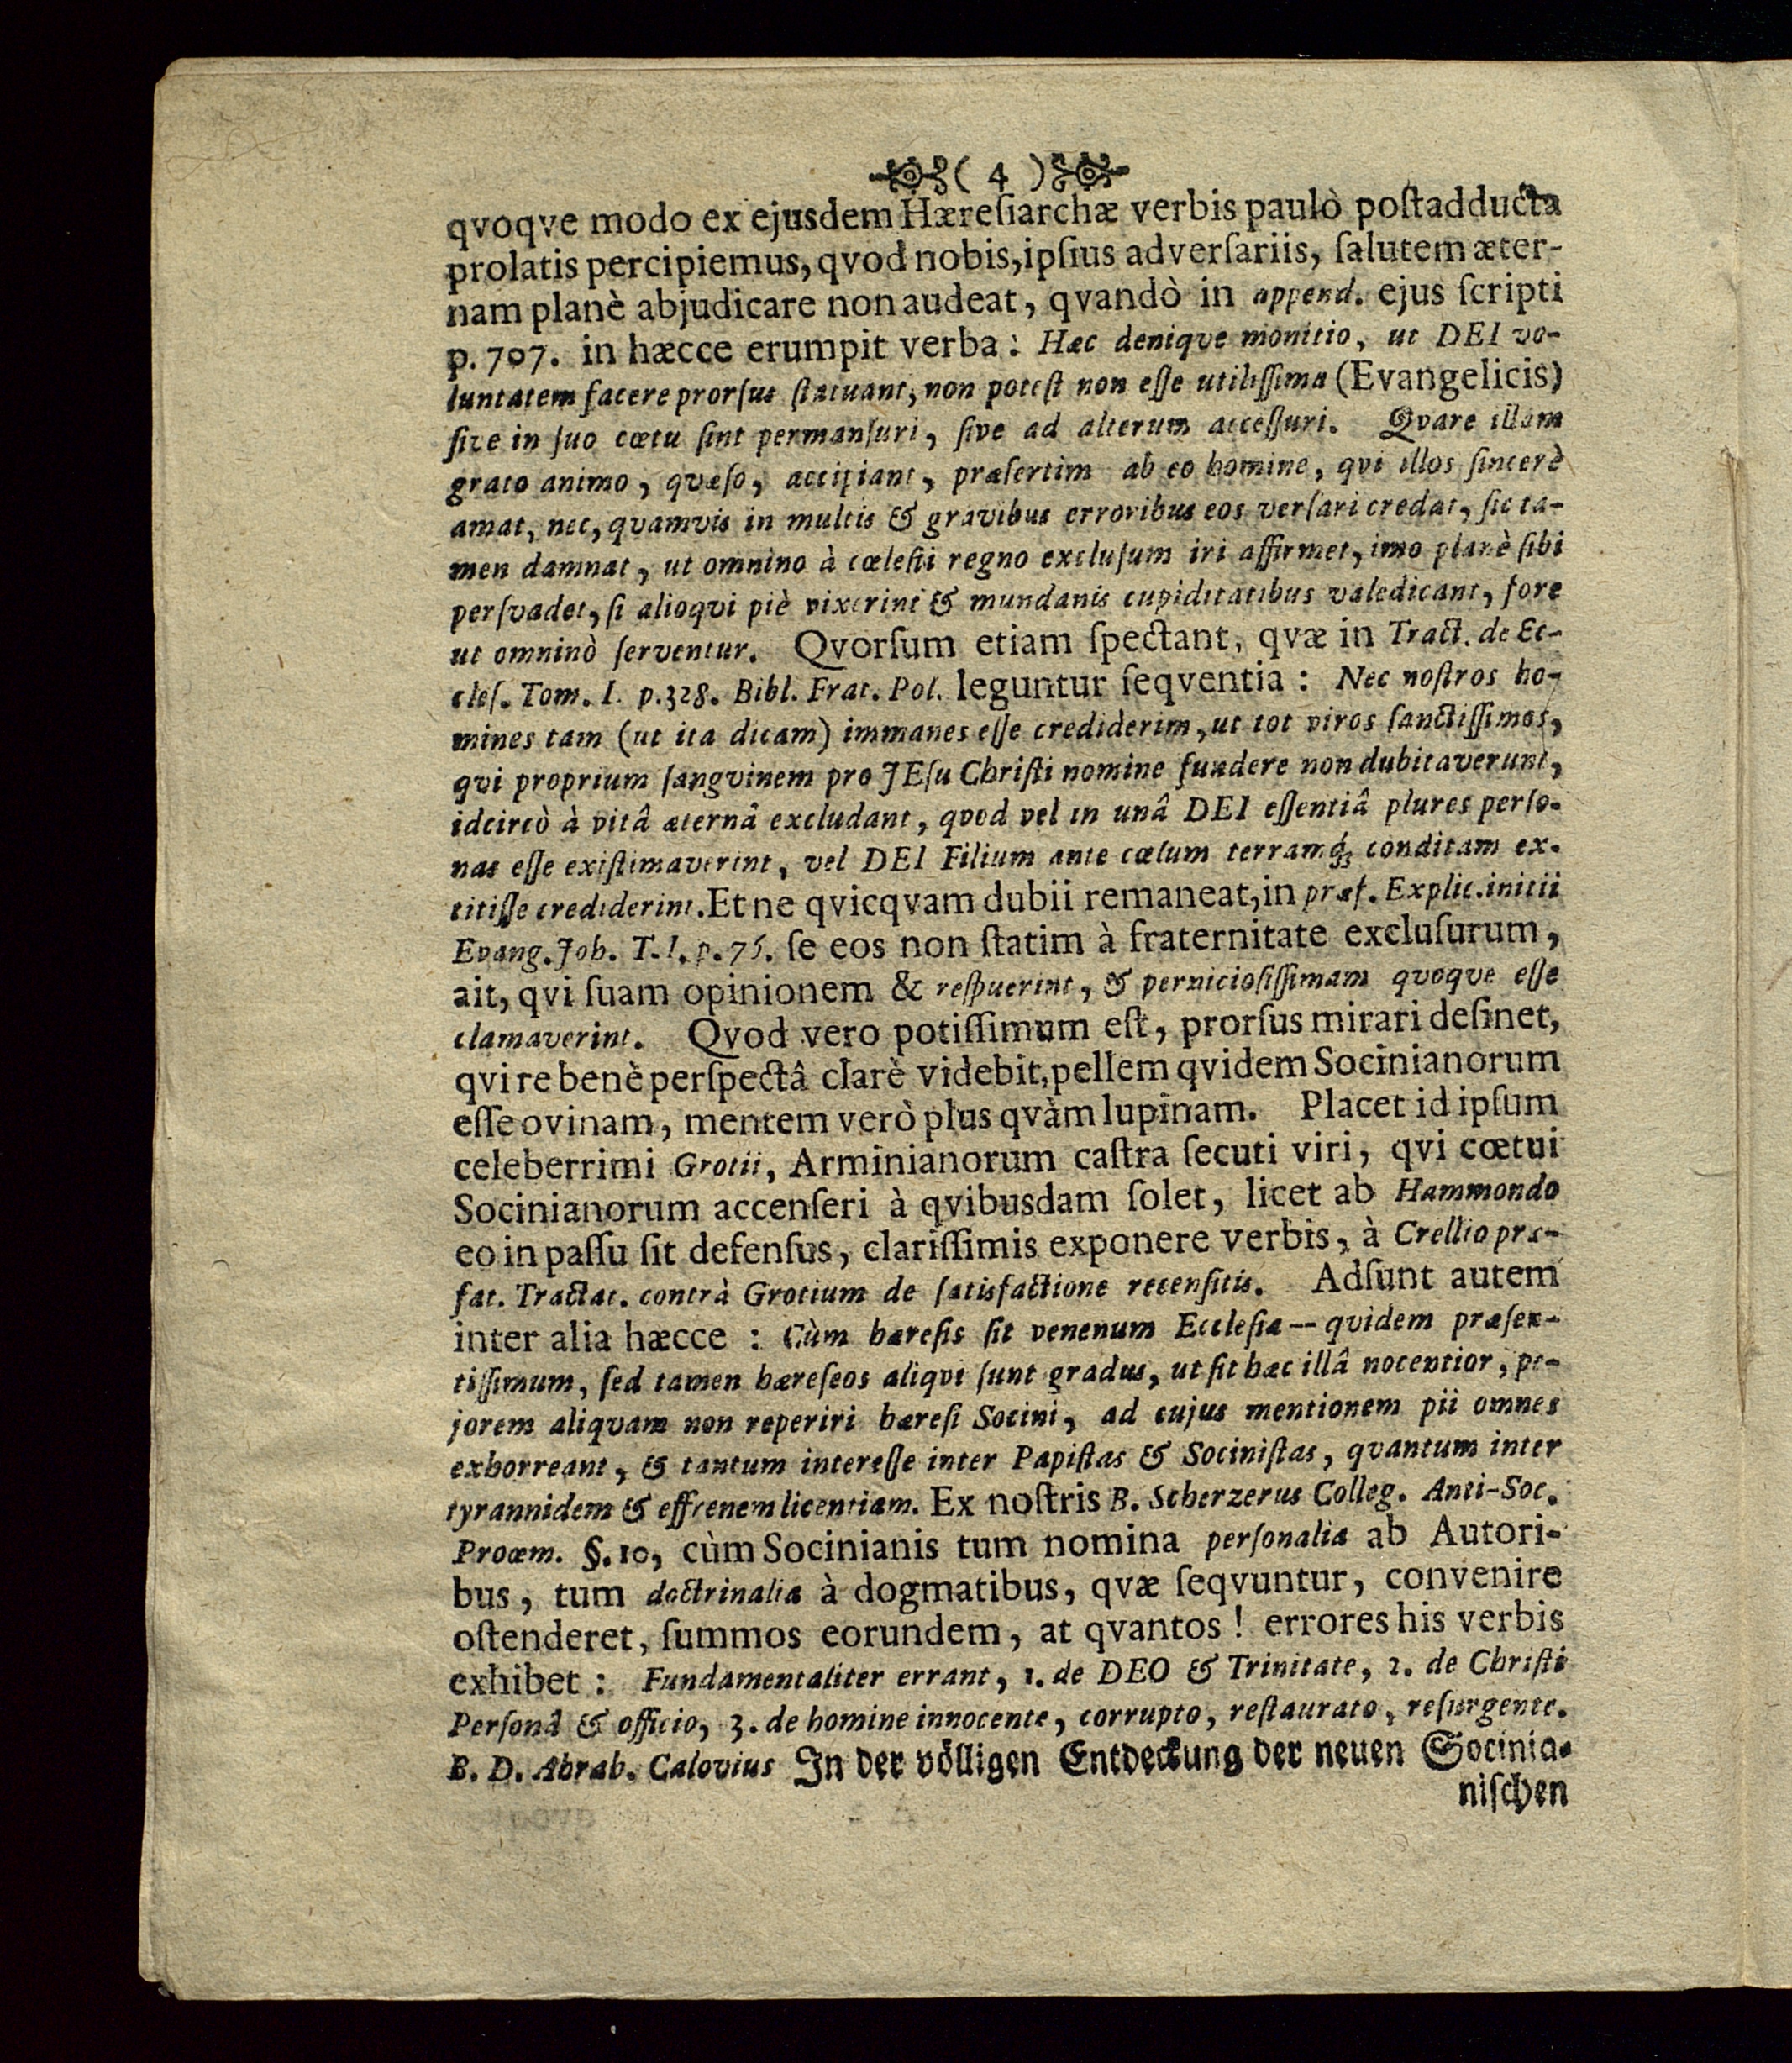 ( 4 )
qvoqve modo ex ejusdem Hæreſiarchæ verbis paulò poſtadducta
prolatis percipiemus, qvod nobis, ipſius adverſariis, ſalutem æter-
nam planè abjudicare non audeat, qvandò in append. ejus ſcripti
p. 707. in hæcce erumpit verba: Hæc deniqve monitio, ut DEI vo-
luntatem facere prorſus ſtatuant, non poteſt non eſſe utiliſſima (Evangelicis)
ſive in ſuo cœtu ſint permanſuri, ſive ad alterum acceſſuri. Qvare illam
grato animo, qvæſo, accipiant, præſertim ab eo homine, qvi illos ſincerè
amat, nec, qvamvis in multis & gravibus erroribus eos verſari credat, ſic ta-
men damnat, ut omnino à cœleſti regno excluſum iri affirmet, imo planè ſibi
perſvadet, ſi alioqvi piè vixerint & mundanis cupiditatibus valedicant, fore
ut omninò ſerventur. Qvorſum etiam ſpectant, qvæ in Tract. de Ec-
cleſ. Tom. I. p. 328. Bibl. Frat. Pol. leguntur ſeqventia: Nec noſtros ho-
mines tam (ut ita dicam) immanes eſſe crediderim, ut tot viros ſanctiſſimos,
qvi proprium ſangvinem pro JEſu Chriſti nomine fundere non dubitaverunt,
idcircò à vitâ æternâ excludant, qvod vel in unâ DEI eſſentiâ plures perſo-
nas eſſe exiſtimaverint, vel DEI Filium ante cœlum terramq́; conditam ex-
titiſſe crediderint. Et ne qvicqvam dubii remaneat, in præf. Explic. initii
Evang. Joh. T. I. p. 75. ſe eos non ſtatim à fraternitate excluſurum,
ait, qvi ſuam opinionem & reſpuerint, & pernicioſiſſimam qvoqve eſſe
clamaverint. Qvod vero potiſſimum eſt, prorſus mirari deſinet,
qvi re benè perſpectâ clarè videbit, pellem qvidem Socinianorum
eſſe ovinam, mentem verò plus qvàm lupinam. Placet id ipſum
celeberrimi Grotii, Arminianorum caſtra ſecuti viri, qvi cœtui
Socinianorum accenſeri à qvibusdam ſolet, licet ab Hammondo
eo in paſſu ſit defenſus, clariſſimis exponere verbis, à Crellio præ-
fat. Tractat. contrà Grotium de ſatisfactione recenſitis. Adſunt autem
inter alia hæcce: Cùm hæreſis ſit venenum Eccleſiæ -- qvidem præſen-
tiſſimum, ſed tamen hæreſeos aliqvi ſunt gradus, ut ſit hæc illâ nocentior, pe-
jorem aliqvam non reperiri hæreſi Socini, ad cujus mentionem pii omnes
exhorreant, & tantum intereſſe inter Papiſtas & Sociniſtas, qvantum inter
tyrannidem & effrenem licentiam. Ex noſtris B. Scherzerus Colleg. Anti-Soc.
Proœm. §. 10, cùm Socinianis tum nomina perſonalia ab Autori-
bus, tum doctrinalia à dogmatibus, qvæ ſeqvuntur, convenire
oſtenderet, ſummos eorundem, at qvantos! errores his verbis
exhibet: Fundamentaliter errant, 1. de DEO & Trinitate, 2. de Chriſti
Perſonâ & officio, 3. de homine innocente, corrupto, reſtaurato, reſurgente.
B. D. Abrah. Calovius In der völligen Entdeckung der neuen Socinia-
niſchen